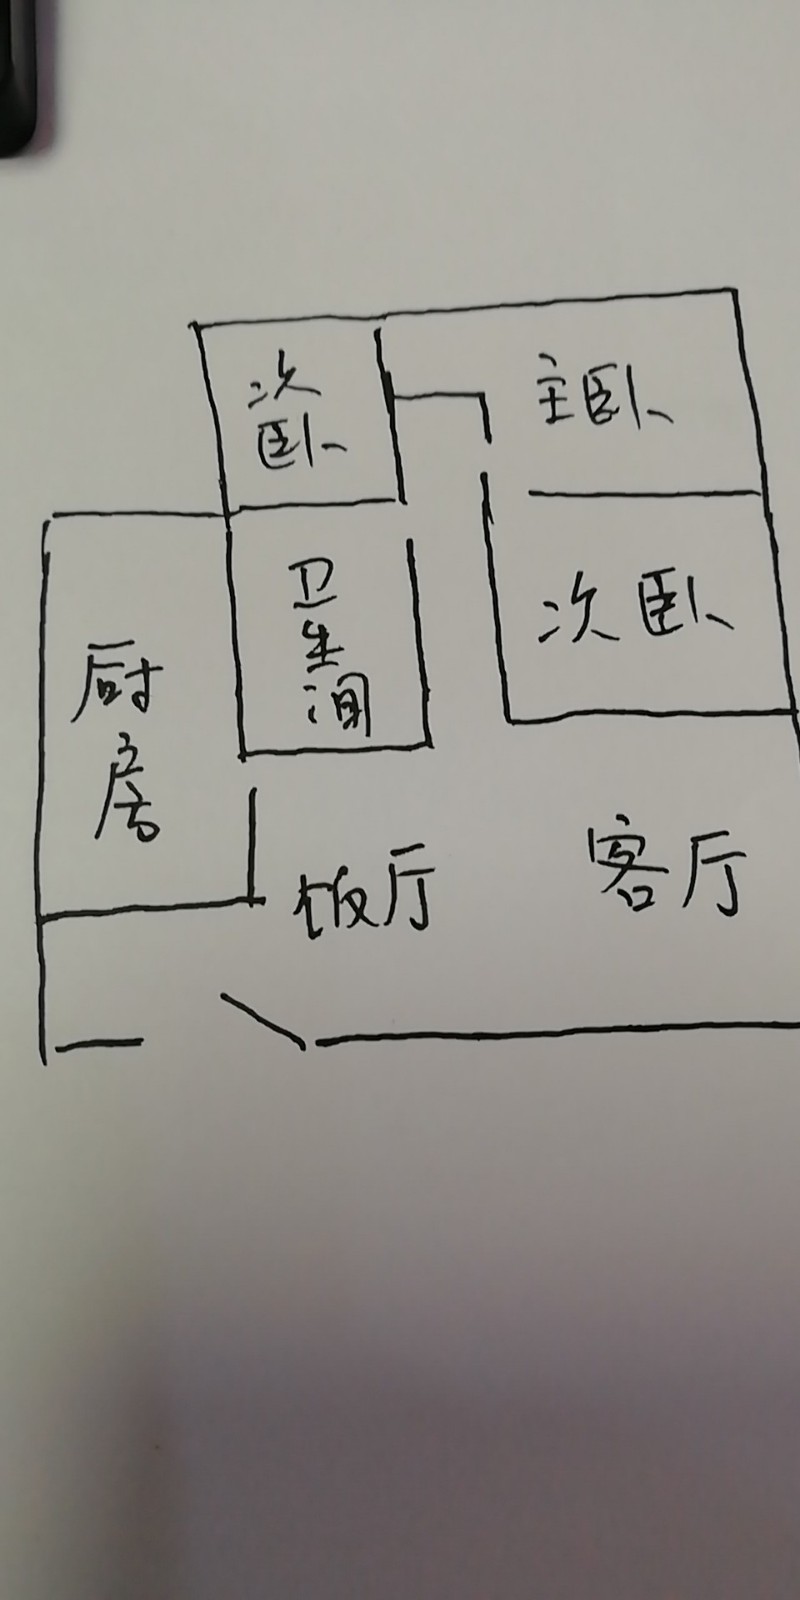 次卧
主卧
卫生间
次卧
厨房
饭厅
客厅